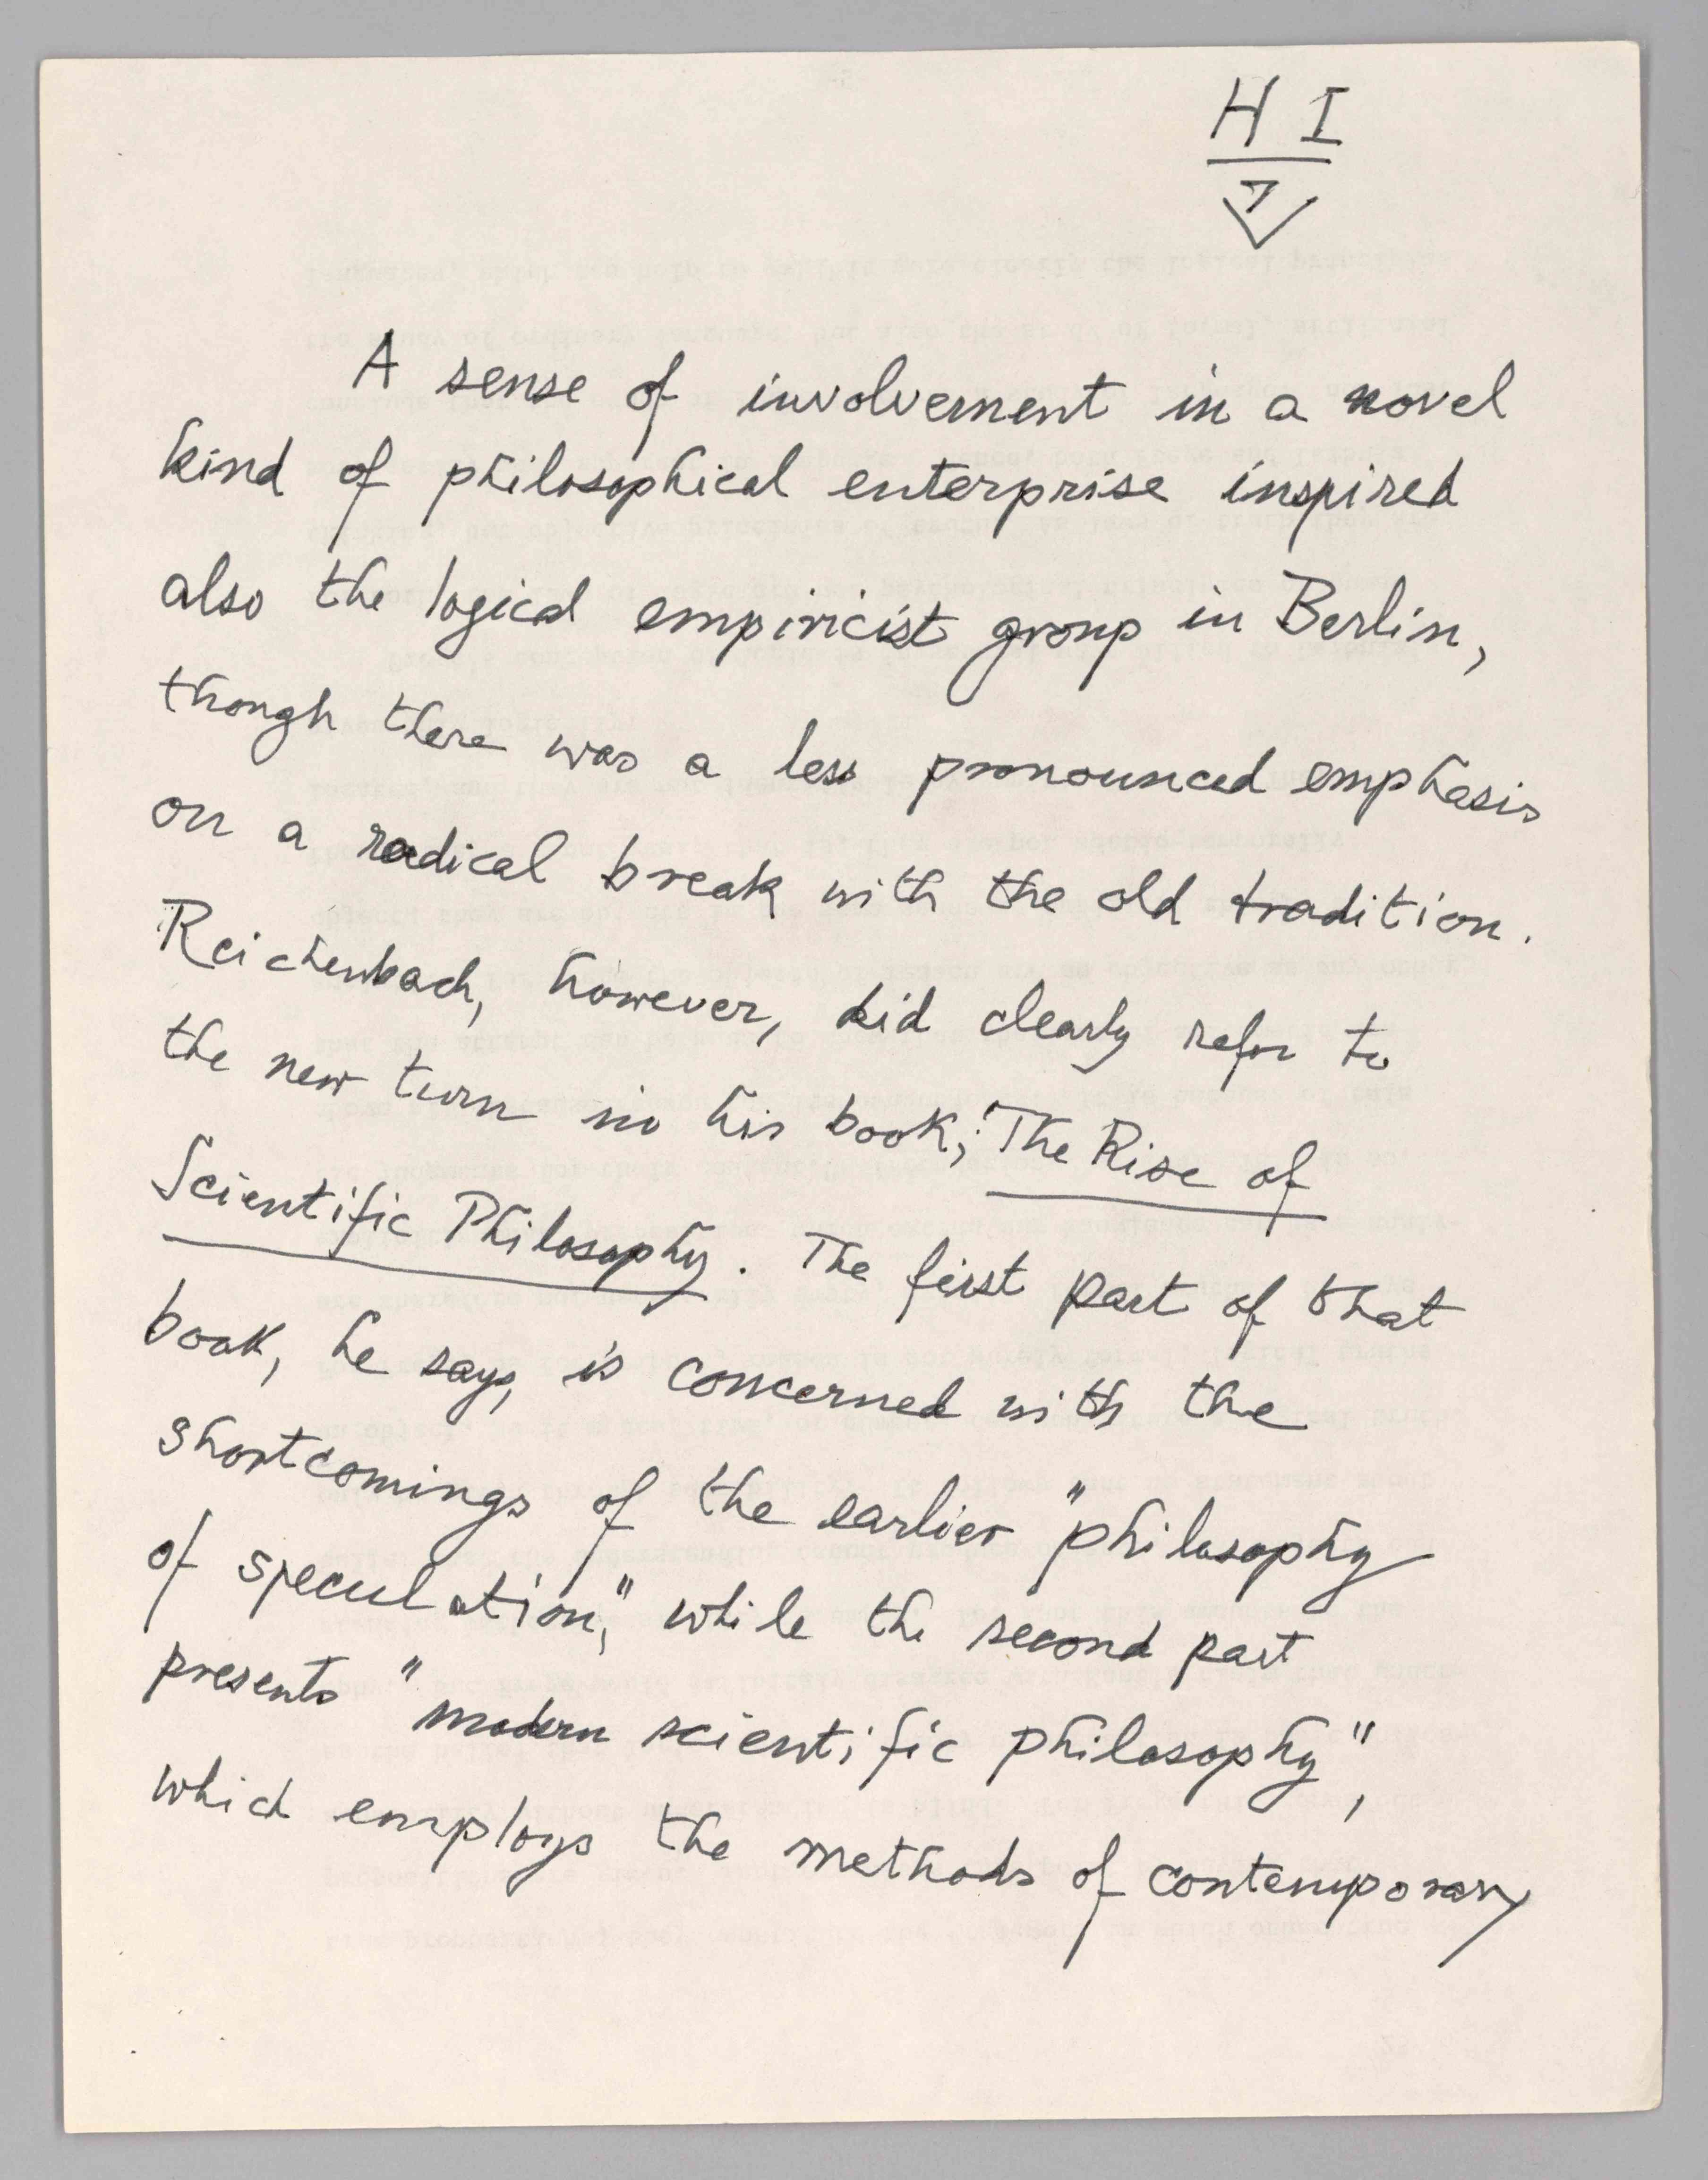 H I
7
A sense of involvement in a novel
kind of philosophical enterprise inspired
also the logical empiricist group in Berlin,
though there was a less pronounced emphasis
on a radical break with the old tradition.
Reichenbach, however, did clearly refer to
the new turn in his book, The Rise of
Scientific Philosophy. The first part of that
book, he says, is concerned with the
shortcomings of the earlier "philosophy
of speculation," while the second part
presents "modern scientific philosophy",
which employs the methods of contemporary